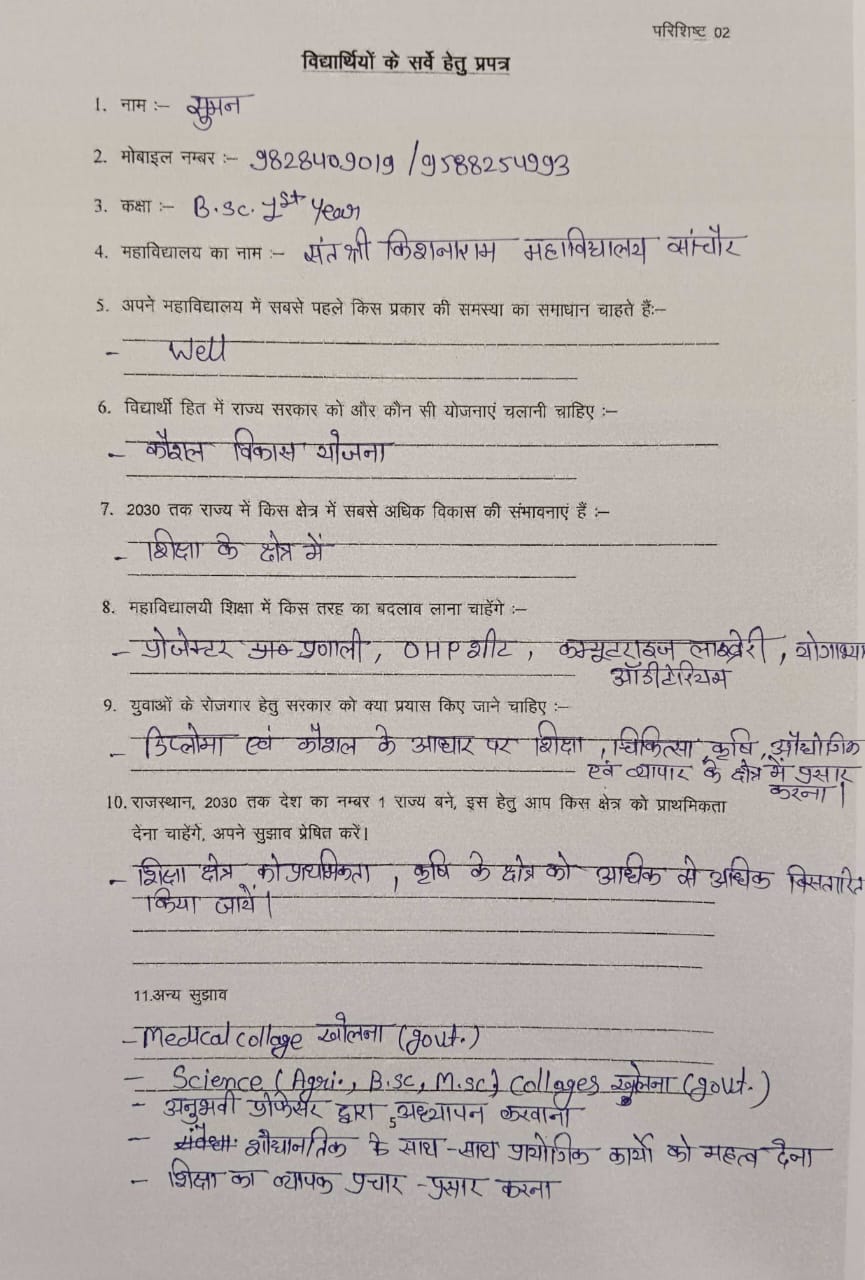 परिशिष्ट 02
विद्यार्थियों के सर्वे हेतु प्रपत्र
1. नाम :- सुमन
2. मोबाइल नम्बर :- 9828409019 / 9588254993
3. कक्षा :- B.sc. 1st Year
4. महाविद्यालय का नाम :- संत श्री किशनाराम महाविद्यालय सांचौर
5. अपने महाविद्यालय में सबसे पहले किस प्रकार की समस्या का समाधान चाहते हैं:-
- Well
6. विद्यार्थी हित में राज्य सरकार को और कौन सी योजनाएं चलानी चाहिए :-
- कौशल विकास योजना
7. 2030 तक राज्य में किस क्षेत्र में सबसे अधिक विकास की संभावनाएं हैं :-
- शिक्षा के क्षेत्र में
8. महाविद्यालयी शिक्षा में किस तरह का बदलाव लाना चाहेंगे :-
- प्रोजेक्टर प्रणाली, OHP शीट, कम्प्यूटराइज लाइब्रेरी, योगाभ्या
ऑडीटेरियम
9. युवाओं के रोजगार हेतु सरकार को क्या प्रयास किए जाने चाहिए :-
- डिप्लोमा एवं कौशल के आधार पर शिक्षा, चिकित्सा, कृषि, औद्योगिक
एवं व्यापार के क्षेत्र में प्रसार
करना।
10. राजस्थान, 2030 तक देश का नम्बर 1 राज्य बने, इस हेतु आप किस क्षेत्र को प्राथमिकता
देना चाहेंगे, अपने सुझाव प्रेषित करें।
- शिक्षा क्षेत्र को प्राथमिकता, कृषि के क्षेत्र को अधिक से अधिक विस्तारित
किया जाये।
11.अन्य सुझाव
- Medical collage खोलना (govt.)
- Science (Agri., B.sc, M.sc) collages खुलना (govt.)
- अनुभवी प्रोफेसर द्वारा अध्यापन करवाना
- शौधानतिक के साथ-साथ प्रायोगिक कार्यो को महत्व देना
- शिक्षा का व्यापक प्रचार-प्रसार करना